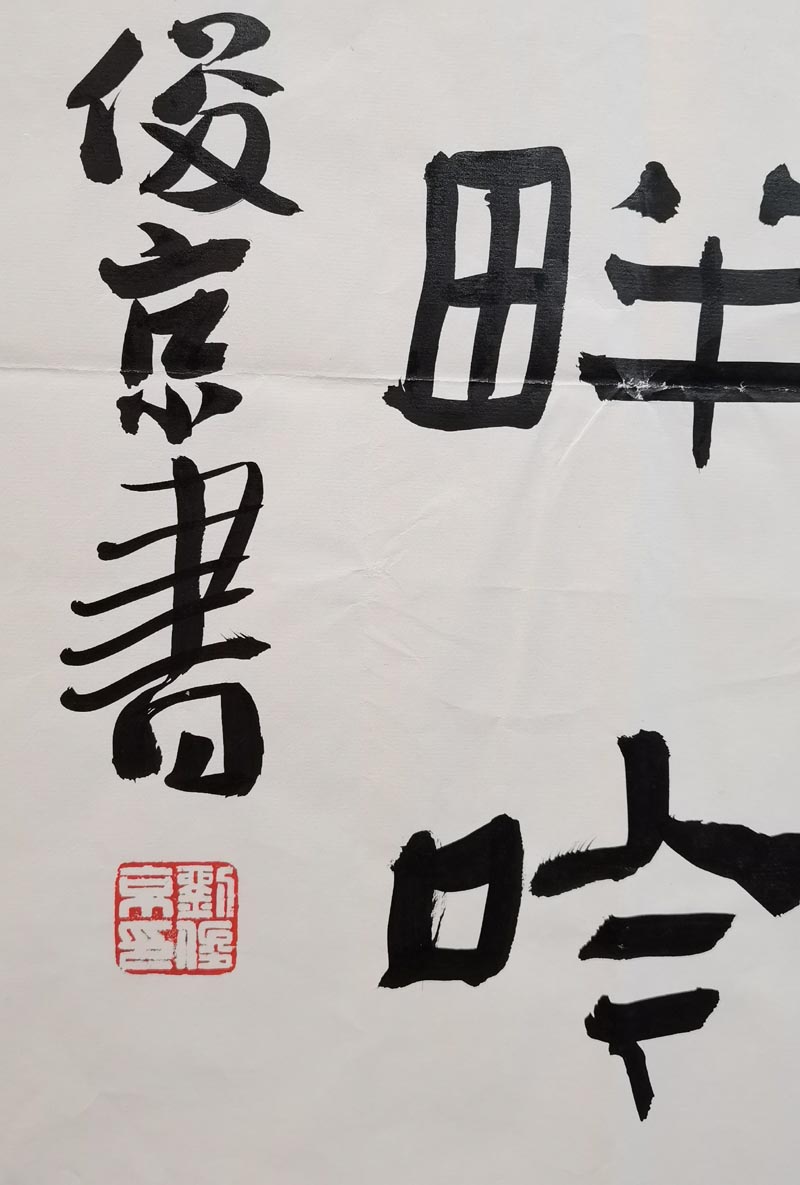 畔吟
俊京書
劉俊京印